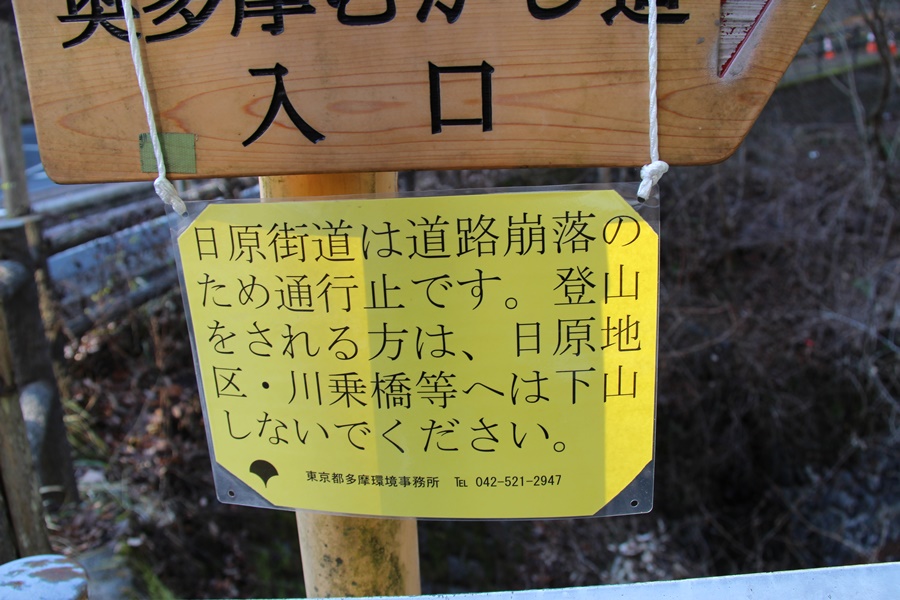 奥多摩むかし道
入口
日原街道は道路崩落の
ため通行止です。登山
をされる方は、日原地
区・川乗橋等へは下山
しないでください。
東京都多摩環境事務所 TEL 042-521-2947